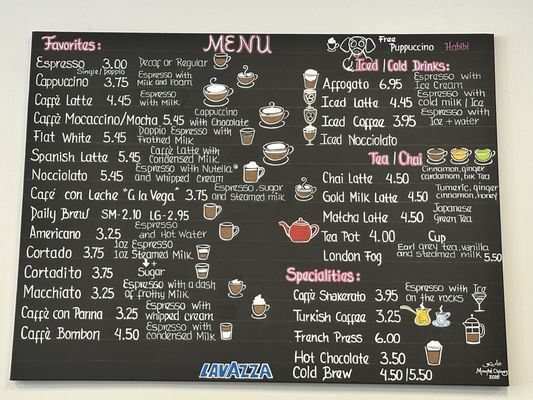 Favorites:
Espresso 3.00 Decaf or Regular
Single/Doppio
Cappuccino 3.75 Espresso with
Milk and Foam
Caffè Latte 4.45 Espresso
with Milk
Caffè Mocaccino/Mocha 5.45 Cappuccino
with Chocolate
Flat White 5.45 Doppio Espresso with
Frothed Milk
Spanish Latte 5.45 Caffè Latte with
Condensed Milk
Nocciolato 5.45 Espresso with Nutella
and whipped cream
Café con Leche "G la Vega" 3.75 Espresso, sugar
and steamed milk
Daily Brew SM-2.10 LG-2.95
Americano 3.25 Espresso
and Hot Water
Cortado 3.75 1oz Espresso
1oz Steamed Milk
Cortadito 3.75 Sugar
Macchiato 3.25 Espresso with a dash
of frothy Milk
Caffè con Panna 3.25 Espresso with
whipped cream
Caffè Bombon 4.50 Espresso with
condensed Milk
MENU
LAVAZZA
Free
Puppuccino Habibi
Iced/Cold Drinks:
Affogato 6.95 Espresso with
Ice Cream
Iced Latte 4.45 Espresso with
cold milk/Ice
Iced Coffee 3.95 Espresso with
Ice + water
Iced Nocciolato
Tea/Chai
Chai Latte 4.50 Cinnamon, ginger
cardamom, blk Tea
Gold Milk Latte 4.50 Tumeric, ginger
cinnamon, honey
Matcha Latte 4.50 Japanese
Green Tea
Tea Pot 4.00 Cup
London Fog Earl grey tea, vanilla
and steamed milk 5.50
Specialities:
Caffè Shakerato 3.95 Espresso with Ice
on the rocks
Turkish Coffee 3.25
French Press 6.00
Hot Chocolate 3.50
Cold Brew 4.50/5.50
2025